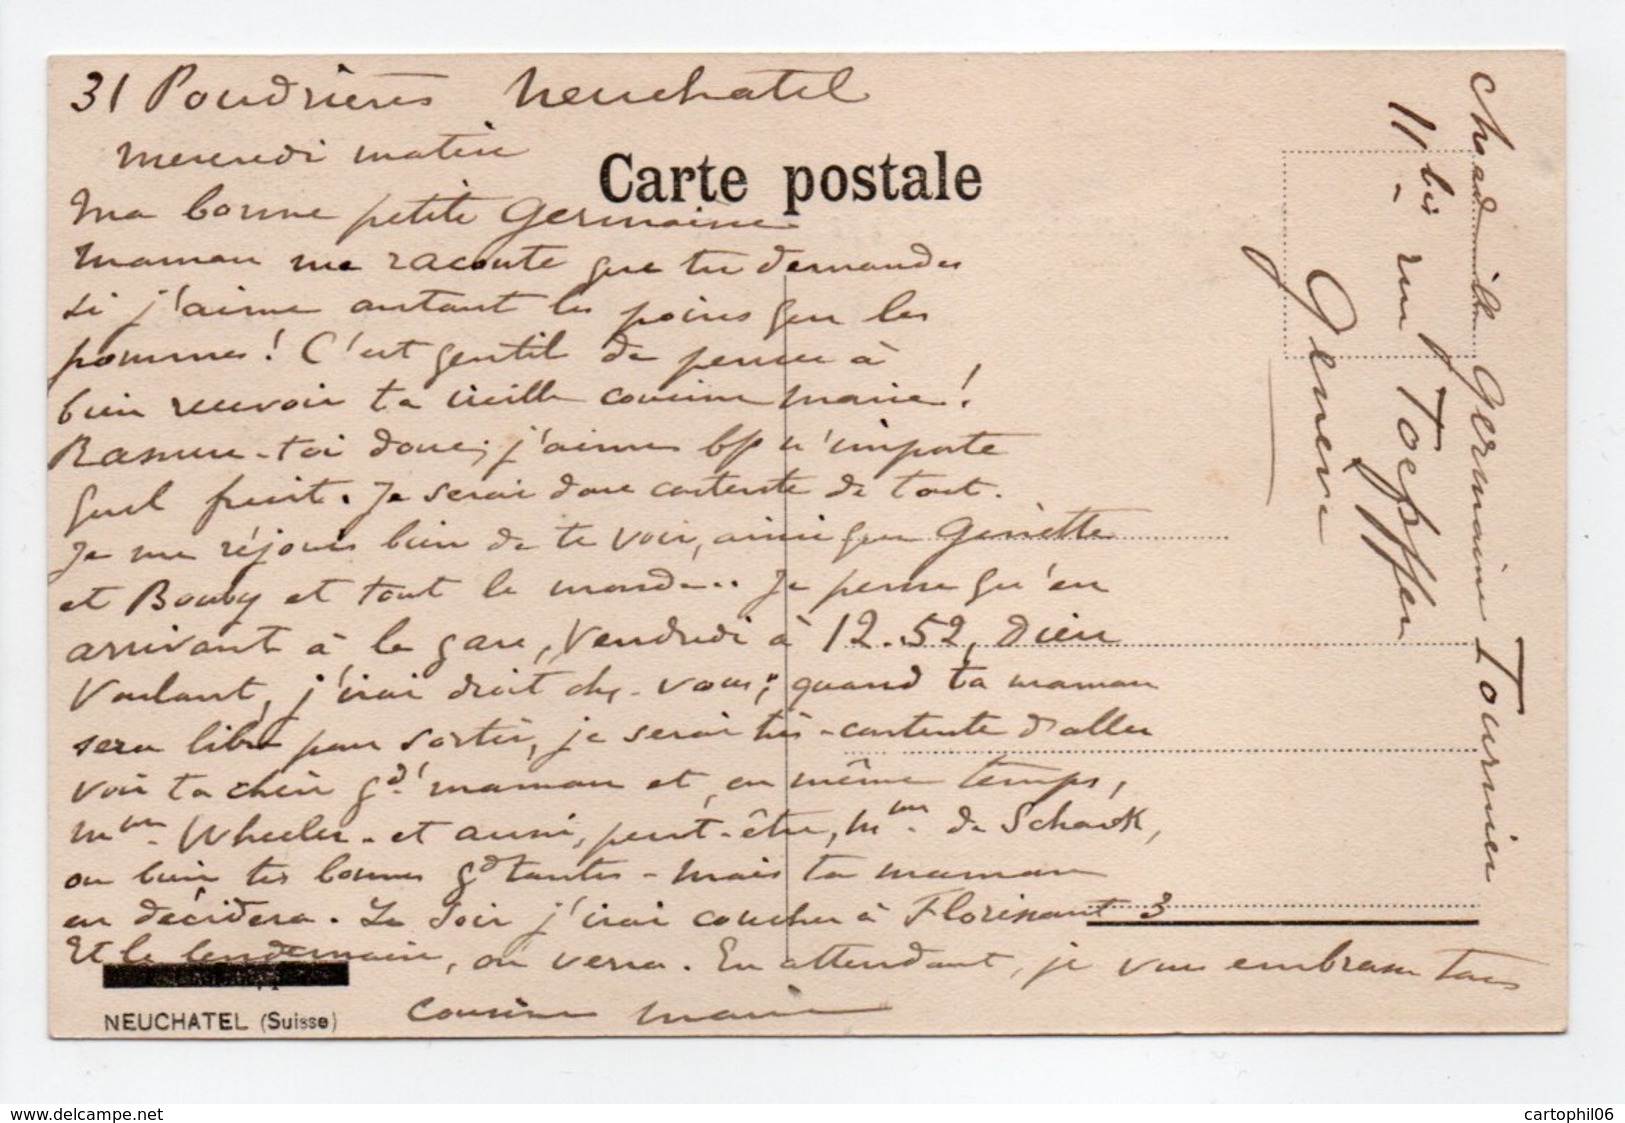 31 Poudrières Neuchatel
mercredi matin
Carte postale
Ma bonne petite Germaine
Maman me raconte que tu demandes
si j'aime autant les poires que les
pommes! C'est gentil de penser à
bien recevoir ta vieille cousine Marie!
Rassure-toi donc; j'aime bp n'importe
quel fruit. Je serai donc contente de tout.
Je me réjouis bien de te voir, ainsi que Ginette
et Bouby et tout le monde.. Je pense qu'en
arrivant à la gare, Vendredi à 12.52, Dieu
Voulant, j'irai droit chez-vous; quand ta maman
sera libre pour sortir, je serai très-contente d'aller
voir ta chère gd' maman et, en même temps,
Mme Wheeler - et aussi, peut-être, Mme de Schack,
ou bien tes bonnes gd tantes - mais ta maman
en décidera. Le soir j'irai coucher à Florissant 3
Et le lendemain, on verra. En attendant, je vous embrasse tous
cousine Marie
NEUCHATEL (Suisse)
Germaine Tournier
11 bis rue Toepffer
Genève
www.delcampe.net
cartophil06